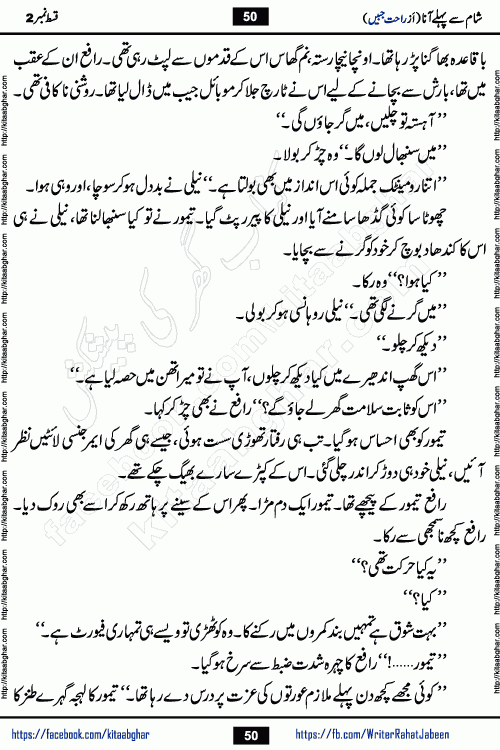 شام سے پہلے آنا (از راحت جبیں)
50
قسط نمبر 2
باقاعدہ بھاگنا پڑ رہا تھا۔ اونچا نیچا رستہ، نم گھاس اس کے قدموں سے لپٹ رہی تھی۔ رافع ان کے عقب
میں تھا، بارش سے بچانے کے لیے اس نے ٹارچ جلا کر موبائل جیب میں ڈال لیا تھا۔ روشنی ناکافی تھی۔
’’آہستہ تو چلیں، میں گر جاؤں گی۔‘‘
’’میں سنبھال لوں گا۔‘‘ وہ چڑ کر بولا۔
’’اتنا رومینٹک جملہ کوئی اس انداز میں بھی بولتا ہے۔‘‘ نیلی نے بددل ہو کر سوچا، اور وہی ہوا۔
چھوٹا سا کوئی گڈھا سامنے آیا اور نیلی کا پیر رپٹ گیا۔ تیمور نے تو کیا سنبھالنا تھا، نیلی نے ہی
اس کا کندھا دبوچ کر خود کو گرنے سے بچایا۔
’’کیا ہوا؟‘‘ وہ رکا۔
’’میں گرنے لگی تھی۔‘‘ نیلی روہانسی ہو کر بولی۔
’’دیکھ کر چلو۔‘‘
’’اس گھپ اندھیرے میں کیا دیکھ کر چلوں، آپ نے تو میراتھن میں حصہ لیا ہے۔‘‘
’’اس کو ثابت سلامت گھر لے جاؤ گے؟‘‘ رافع نے بھی چڑ کر کہا۔
تیمور کو بھی احساس ہو گیا۔ تب ہی رفتار تھوڑی سست ہوئی، جیسے ہی گھر کی ایمرجنسی لائٹیں نظر
آئیں، نیلی خود ہی دوڑ کر اندر چلی گئی۔ اس کے کپڑے سارے بھیگ چکے تھے۔
رافع تیمور کے پیچھے تھا۔ تیمور ایک دم مڑا۔ پھر اس کے سینے پر ہاتھ رکھ کر اسے بھی روک دیا۔
رافع کچھ ناسمجھی سے رکا۔
’’یہ کیا حرکت تھی؟‘‘
’’کیا؟‘‘
’’بہت شوق ہے تمہیں بند کمروں میں رکنے کا۔ وہ کوٹھڑی تو ویسے ہی تمہاری فیورٹ ہے۔‘‘
’’تیمور......!‘‘ رافع کا چہرہ شدت ضبط سے سرخ ہو گیا۔
’’کوئی مجھے کچھ دن پہلے ملازم عورتوں کی عزت پر درس دے رہا تھا۔‘‘ تیمور کا لہجہ گہرے طنز کا
https://facebook.com/kitaabghar
50
https://fb.com/WriterRahatJabeen
http://kitaabghar.com